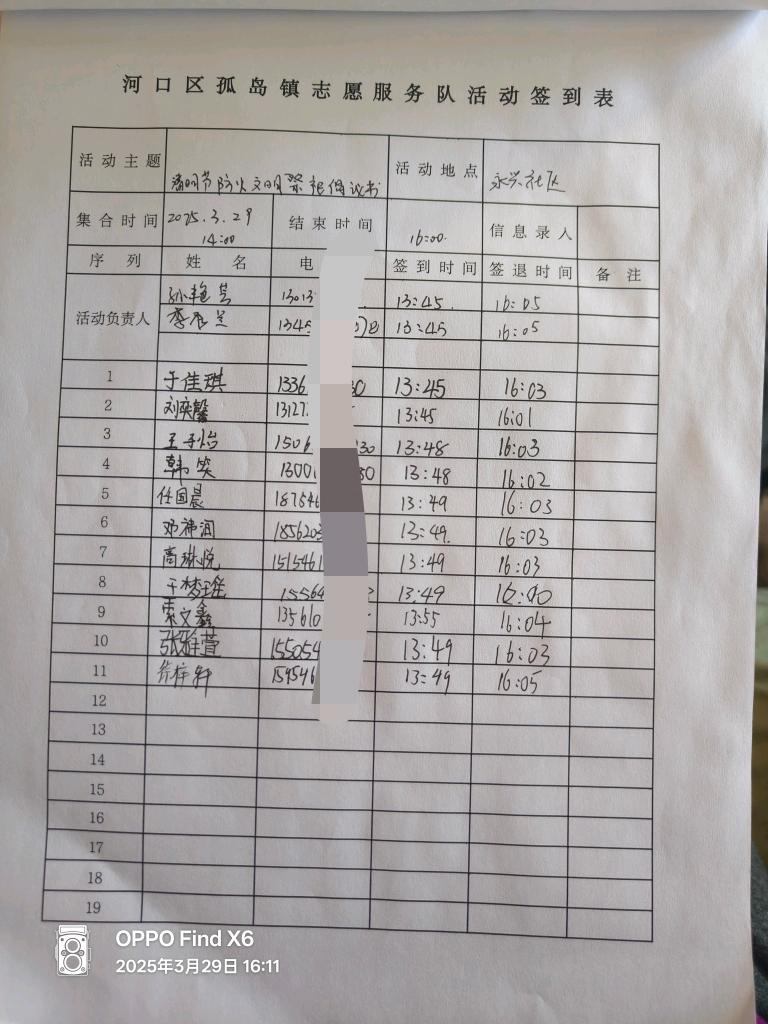 河口区孤岛镇志愿服务队活动签到表
活动主题 清明节防火文明祭祀倡议书 活动地点 永兴社区
集合时间 2025.3.29 14:00 结束时间 16:00 信息录入
序列 姓名 电 签到时间 签退时间 备注
活动负责人
孙艳芸 13013 13:45 16:05
李 兰 1345 13:45 16:05
1 于佳琪 1336 30 13:45 16:03
2 刘奕馨 13127 13:45 16:01
3 王子怡 1506 130 13:48 16:03
4 韩笑 1300 13:48 16:02
5 任国晨 187546 13:49 16:03
6 邓 润 1856203 13:49 16:03
7 高琳悦 1515461 13:49 16:03
8 于梦瑶 15564 13:49 16:00
9 索文鑫 135610 13:55 16:04
10 张雅萱 155054 13:49 16:03
11 梓轩 159546 13:49 16:05
12
13
14
15
16
17
18
19
OPPO Find X6
2025年3月29日 16:11